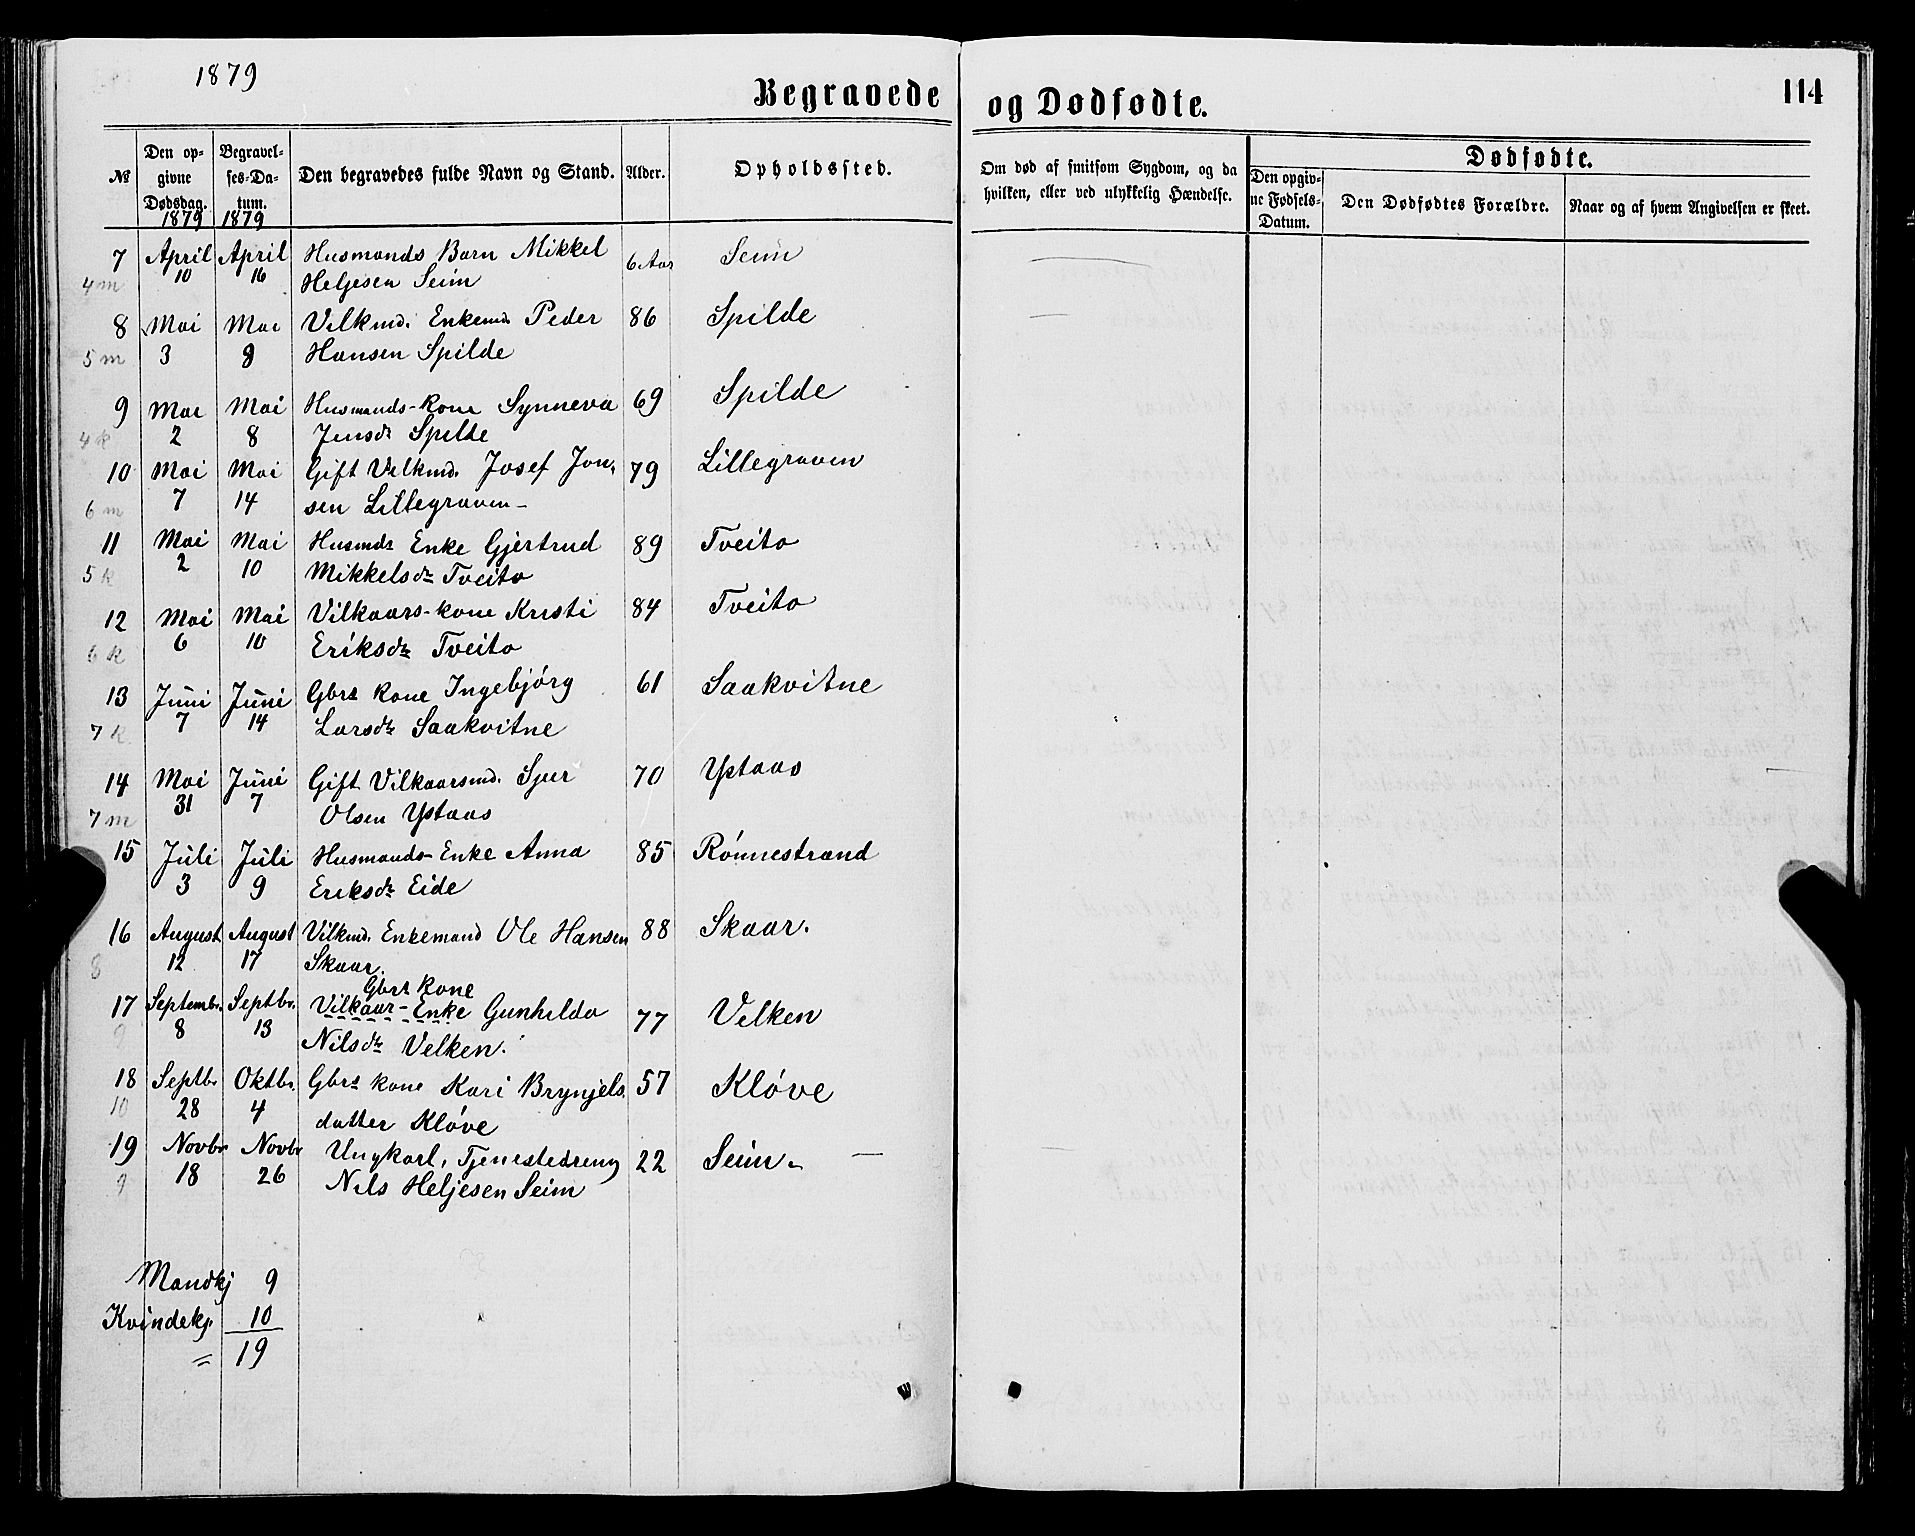 1879
Begravede og Dødfødte.
114
№ Den opgivne Dødsdag. Begravelses-Datum. Den begravedes fulde Navn og Stand. Alder. Opholdssted. Om død af smitsom Sygdom, og da hvilken, eller ved ulykkelig Hændelse. Dødfødte.
Den opgivne Fødsels-Datum. Den Dødfødtes Forældre. Naar og af hvem Angivelsen er skeet.
1879 1879
7 April April Husmands Barn Mikkel 6 Aar Seim
4 m 10 16 Heljesen Seim
8 Mai Mai Vilkmd. Enkemd. Peder 86 Spilde
5 m 3 8 Hansen Spilde
9 Mai Mai Husmands-kone Synneva 69 Spilde
4 k 2 8 Jensdr Spilde
10 Mai Mai Gift Vilkmd. Josef Jon- 79 Lillegraven
6 m 7 14 sen Lillegraven-
11 Mai Mai Husmds Enke Gjertrud 89 Tveito
5 k 2 10 Mikkelsdr Tveito
12 Mai Mai Vilkaars-kone Kristi 84 Tveito
6 k 6 10 Eriksdr Tveito
13 Juni Juni Gbrs kone Ingebjórg 61 Saakvitne
7 k 7 14 Larsdr Saakvitne
14 Mai Juni Gift Vilkaarsmd. Sjur 70 Ystaas
7 m 31 7 Olsen Ystaas
15 Juli Juli Husmands-Enke Anna 85 Rónnestrand
3 9 Eriksdr Eide
16 August August Vilkmd. Enkemand Ole Hansen 88 Skaar.
8 12 17 Skaar.
Gbrs kone
17 Septembr. Septbr. Vilkaar-Enke Gunhilda 77 Velken
9 8 13 Nilsdr Velken.
18 Septbr Oktbr. Gbrs kone Kari Brynjels 57 Klóve
10 28 4 datter Klóve
19 Novbr Novbr Ungkarl, Tjenestedreng 22 Seim
9 18 26 Nils Heljesen Seim
Mandkj 9
Kvindekj. 10
= 19